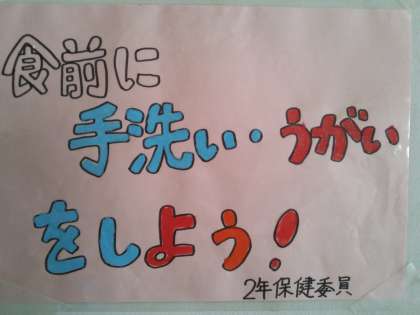 食前に
手洗い・うがい
をしよう!
2年保健委員